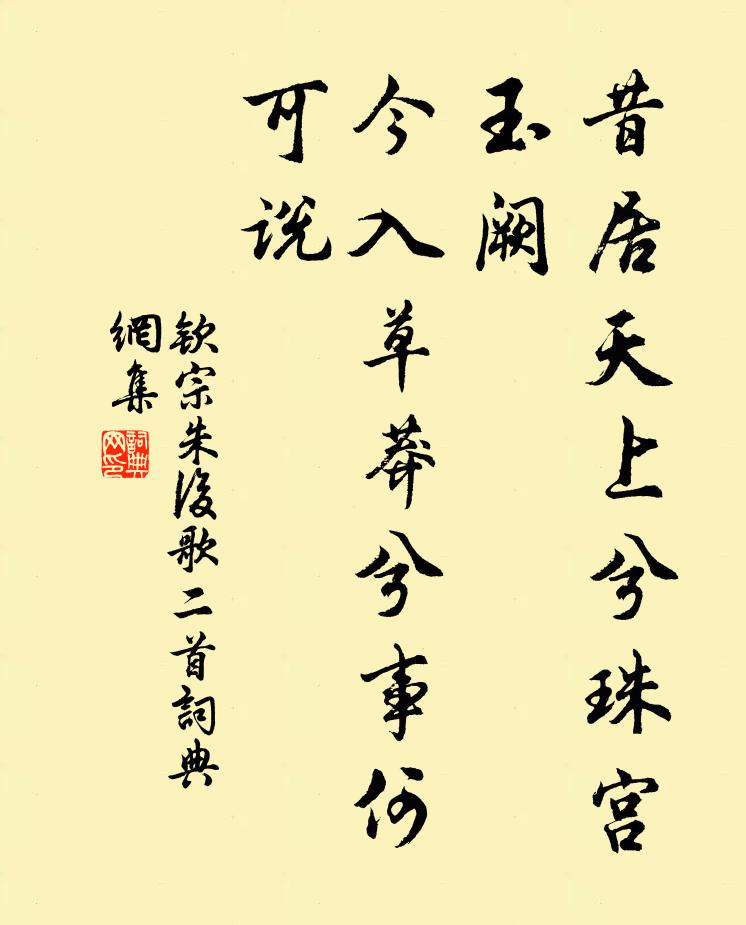 昔居天上兮珠宫
玉阙
今入草莽兮事何
可说
欽宗朱後歌二首詞典
網集
詞典
网印